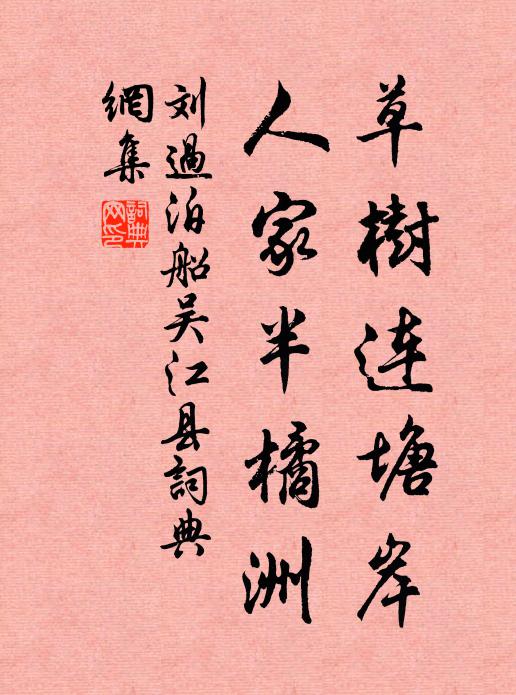 草樹连塘岸
人家半橘洲
刘過泊船吴江县詞典
網集
詞典
网